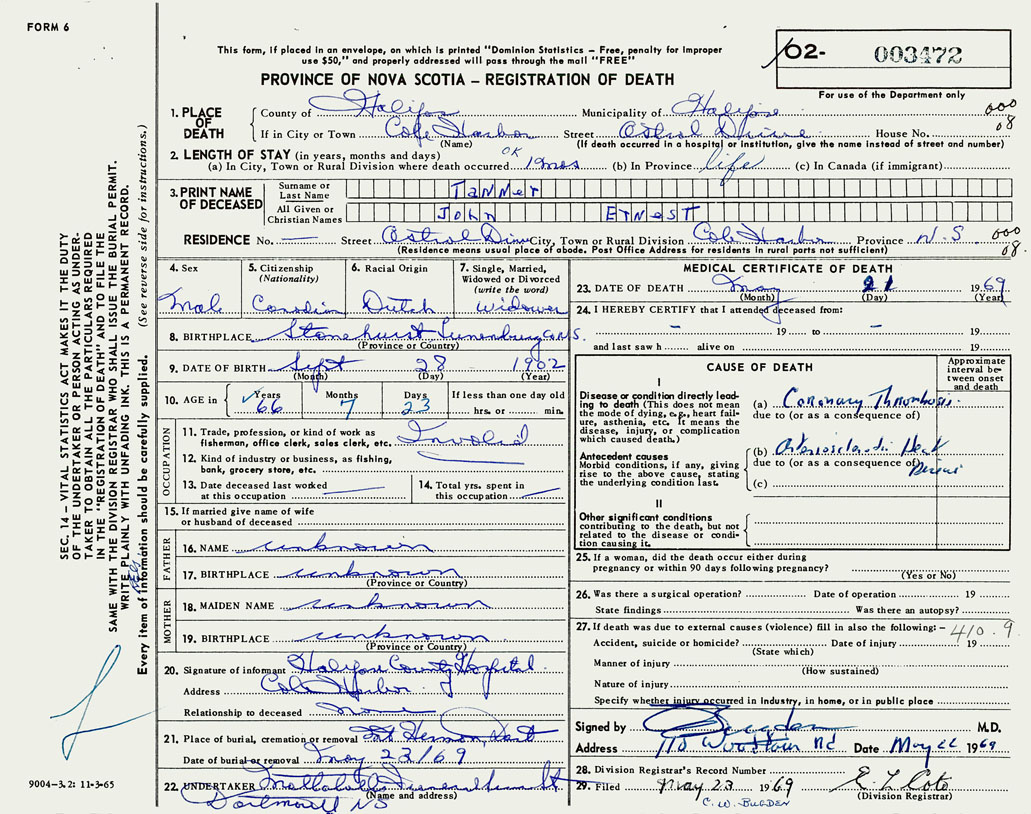 FORM 6
This form, if placed in an envelope, on which is printed "Dominion Statistics – Free, penalty for improper
use $50," and properly addressed will pass through the mail "FREE"
PROVINCE OF NOVA SCOTIA – REGISTRATION OF DEATH
02- 003472
For use of the Department only
SEC. 14 – VITAL STATISTICS ACT MAKES IT THE DUTY
OF THE UNDERTAKER OR PERSON ACTING AS UNDER-
TAKER TO OBTAIN ALL THE PARTICULARS REQUIRED
IN THE "REGISTRATION OF DEATH" AND TO FILE THE
SAME WITH THE DIVISION REGISTRAR WHO SHALL ISSUE THE BURIAL PERMIT.
WRITE PLAINLY WITH UNFADING INK. THIS IS A PERMANENT RECORD.
Every item of information should be carefully supplied. (See reverse side for instructions.)
1. PLACE OF DEATH
County of Halifax Municipality of Halifax 000
If in City or Town Cole Harbor Street Astral Drive House No. 08
(Name) (If death occurred in a hospital or institution, give the name instead of street and number)
2. LENGTH OF STAY (in years, months and days) OK
(a) In City, Town or Rural Division where death occurred 19mos (b) In Province life (c) In Canada (if immigrant)
3. PRINT NAME OF DECEASED
Surname or Last Name Tanner
All Given or Christian Names John Ernest
RESIDENCE No. — Street Astral Drive City, Town or Rural Division Cole Harbor Province N.S. 000
(Residence means usual place of abode. Post Office Address for residents in rural parts not sufficient) 08
4. Sex 5. Citizenship (Nationality) 6. Racial Origin 7. Single, Married, Widowed or Divorced (write the word)
Male Canadian Dutch Widower
8. BIRTHPLACE Stonehurst Lunenburg Co N.S.
(Province or Country)
9. DATE OF BIRTH Sept 28 1902
(Month) (Day) (Year)
10. AGE in Years Months Days If less than one day old
66 7 23 hrs. or min.
OCCUPATION
11. Trade, profession, or kind of work as
fisherman, office clerk, sales clerk, etc. Invalid
12. Kind of industry or business, as fishing,
bank, grocery store, etc.
13. Date deceased last worked
at this occupation
14. Total yrs. spent in
this occupation
15. If married give name of wife
or husband of deceased
FATHER
16. NAME unknown
17. BIRTHPLACE unknown
(Province or Country)
MOTHER
18. MAIDEN NAME unknown
19. BIRTHPLACE unknown
(Province or Country)
20. Signature of informant Halifax County Hospital
Address Cole Harbor
Relationship to deceased none
21. Place of burial, cremation or removal Mt Hermon, Dart
Date of burial or removal May 23/69
22. UNDERTAKER Funeral
(Name and address)
Dartmouth NS
9004-3.2: 11-3-65
MEDICAL CERTIFICATE OF DEATH
23. DATE OF DEATH May 21 1969
(Month) (Day) (Year)
24. I HEREBY CERTIFY that I attended deceased from:
– 19 to – 19
and last saw h alive on 19
CAUSE OF DEATH
Approximate interval between onset and death
I
Disease or condition directly lead-
ing to death (This does not mean
the mode of dying, e.g., heart fail-
ure, asthenia, etc. It means the
disease, injury, or complication
which caused death.)
(a) Coronary Thrombosis
due to (or as a consequence of)
Antecedent causes
Morbid conditions, if any, giving
rise to the above cause, stating
the underlying condition last.
(b) Arteriosclerotic Heart
due to (or as a consequence of) Disease
(c)
II
Other significant conditions
contributing to the death, but not
related to the disease or condi-
tion causing it.
25. If a woman, did the death occur either during
pregnancy or within 90 days following pregnancy?
(Yes or No)
26. Was there a surgical operation? Date of operation 19
State findings Was there an autopsy?
27. If death was due to external causes (violence) fill in also the following: – 410.9
Accident, suicide or homicide? Date of injury 19
(State which)
Manner of injury
(How sustained)
Nature of injury
Specify whether injury occurred in Industry, in home, or in public place
Signed by Bugden M.D.
Address 110 Woodlawn Rd Date May 22 1969
28. Division Registrar's Record Number
29. Filed May 23 1969 E L Cote
(Division Registrar)
C. W. BUGDEN